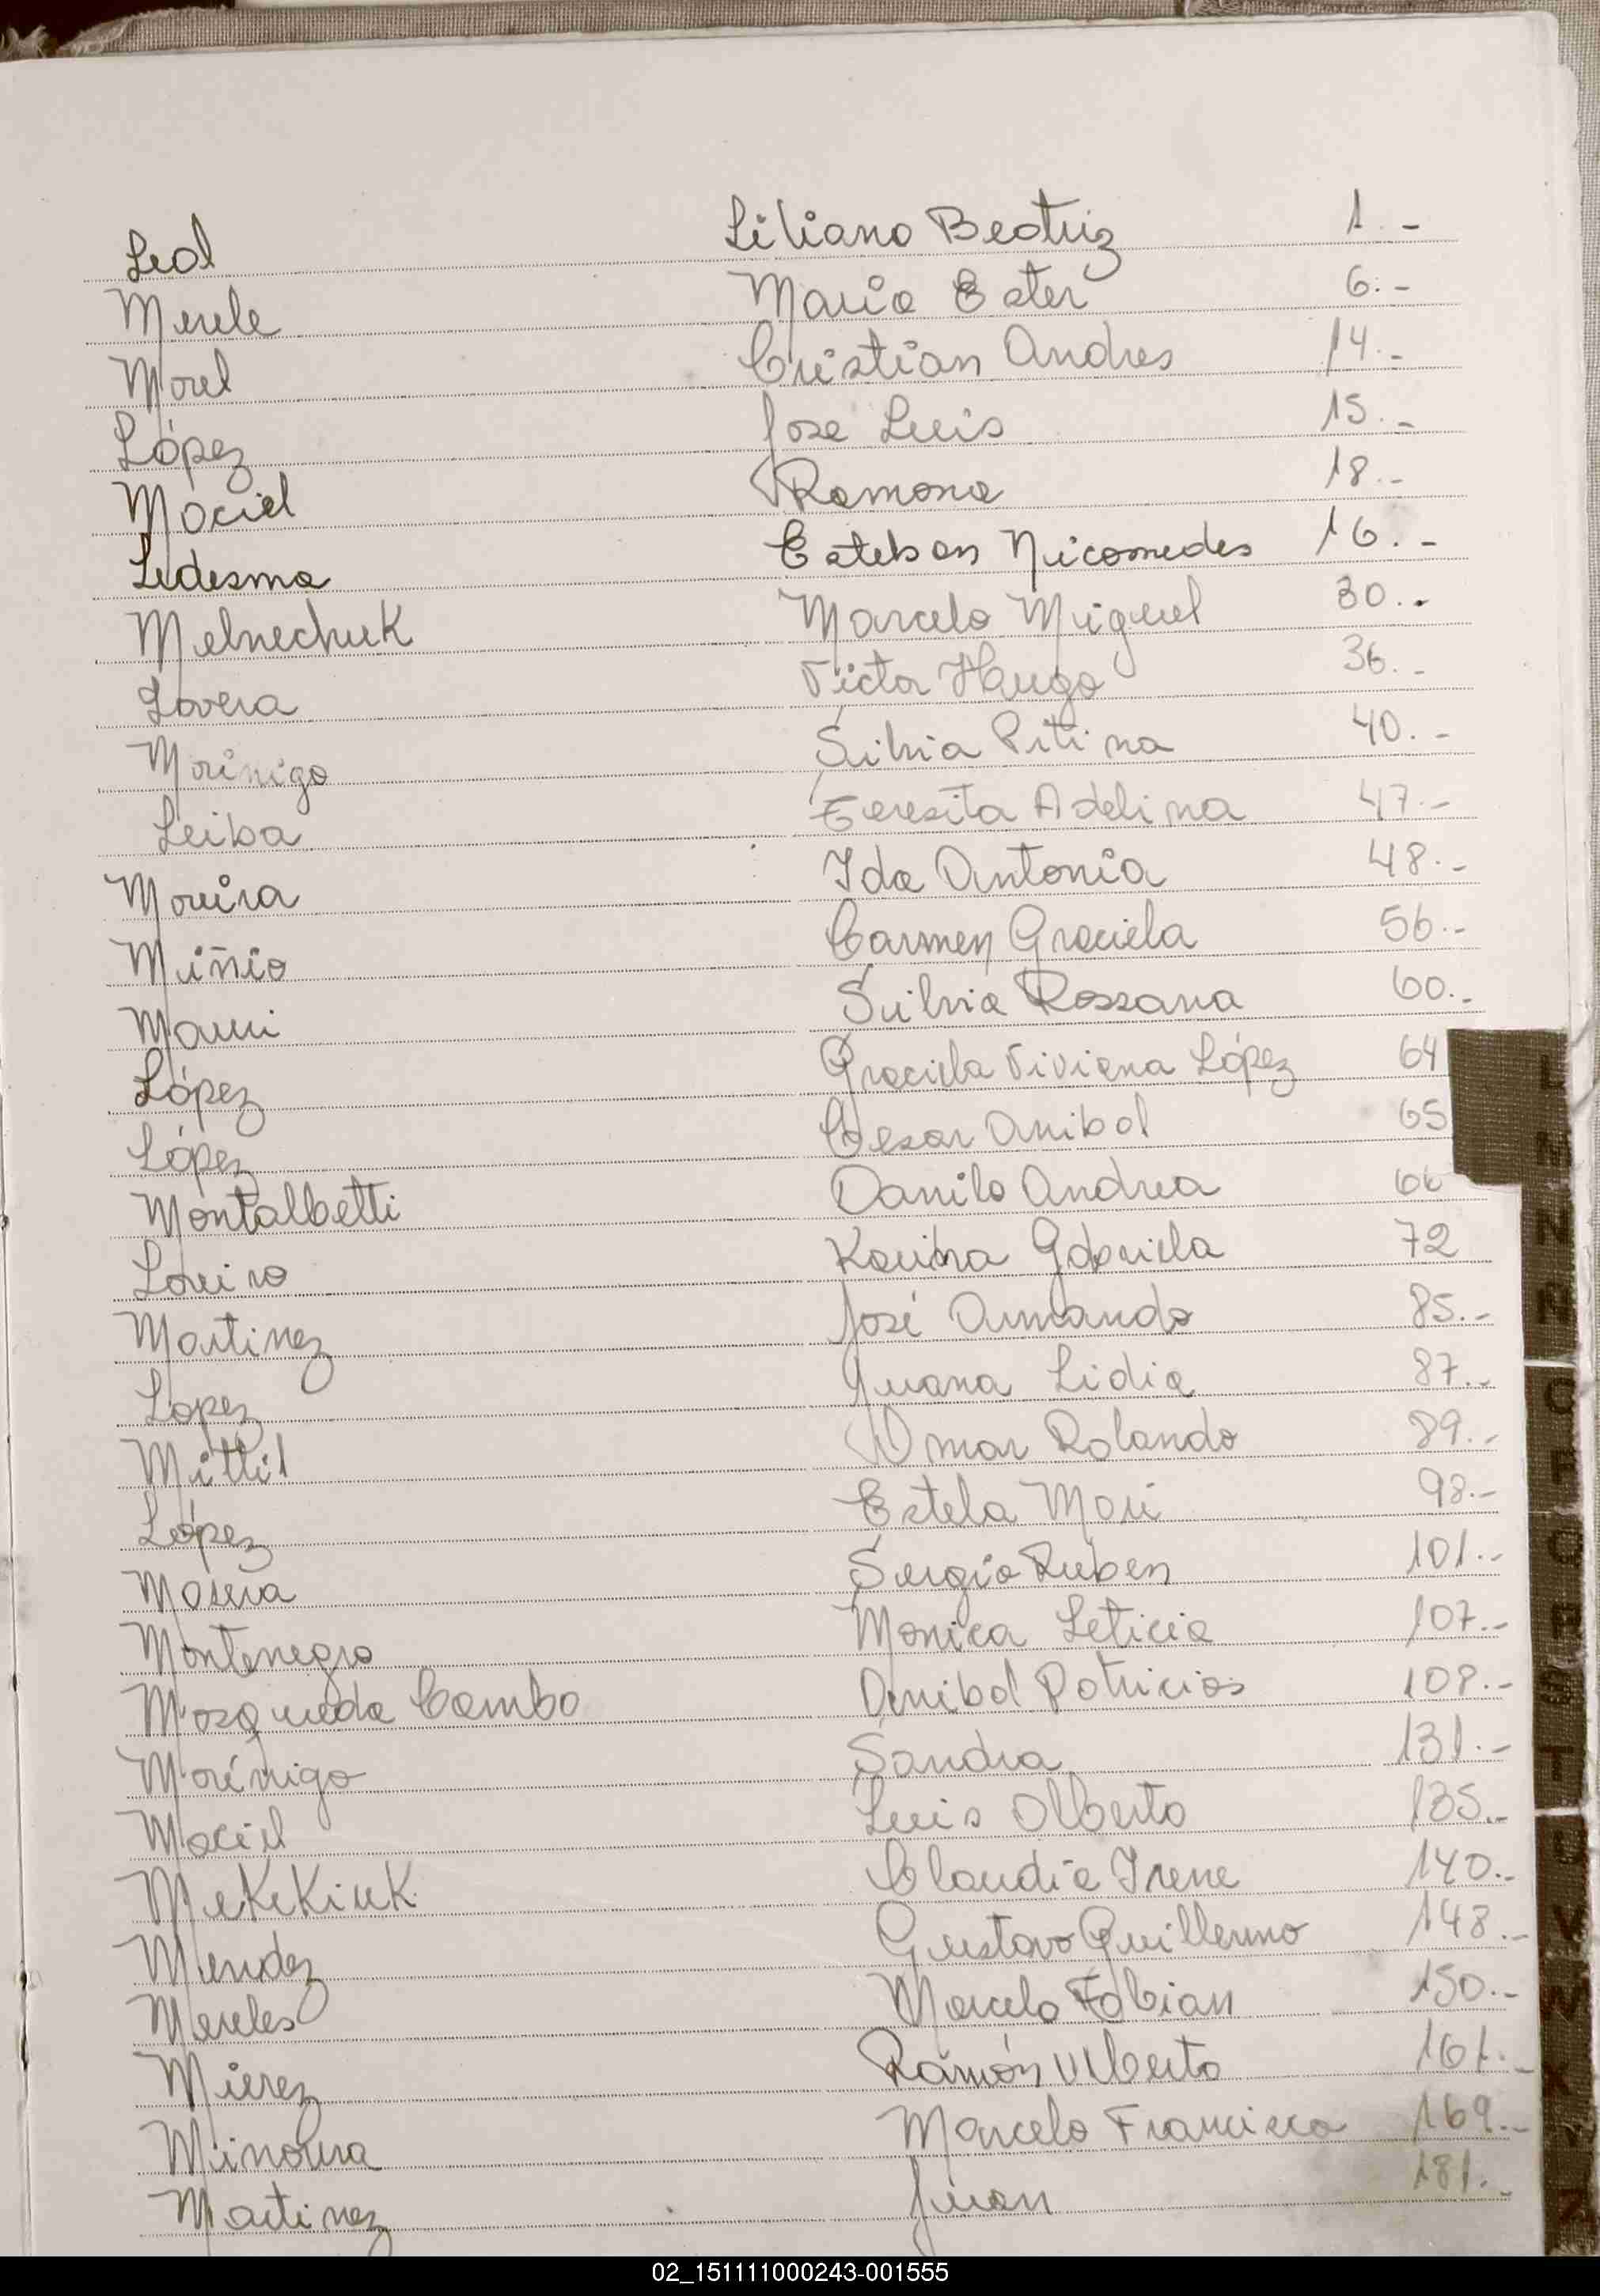 Leal Liliana Beatriz 1.-
Merele Maria Ester 6.-
Morel Cristian Andres 14.-
López Jose Luis 15.-
Maciel Ramona 18.-
Ledesma Esteban Nicomedes 16.-
Melnechuk Marcelo Miguel 30.-
Lovera Victor Hugo 36.-
Morinigo Silvia Pitina 40.-
Leiba Teresita Adelina 47.-
Moreira Ida Antonia 48.-
Miñio Carmen Graciela 56.-
Silvia Rossana 60.-
López Graciela Viviana López 64
López Cesar Anibal 65
Montalbetti Danilo Andrea 66
Loreiro Karina Gabriela 72
Martinez José Armando 85.-
Lopez Juana Lidia 87.-
Mittil Omar Rolando 89.-
López Estela Mari 98.-
Sergio Ruben 101.-
Montenegro Monica Leticia 107.-
Mosqueda Cambo Anibal Patricios 108.-
Morínigo Sandra 131.-
Maciel Luis Alberto 135.-
Mekekiuk Claudia Irene 140.-
Mendez Gustavo Guillermo 148.-
Mereles Marcelo Fabian 150.-
Mierez Ramón Alberto 161.-
Minoura Marcelo Francisco 169.-
Martinez Juan 181.-
L
M
N
Ñ
O
P
Q
R
S
T
U
V
W
X
Y
Z
02_151111000243-001555